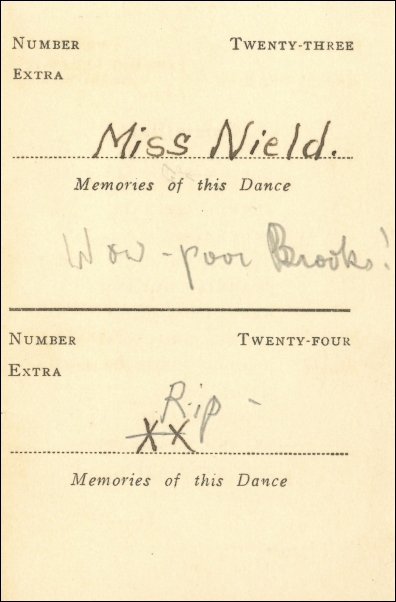 NUMBER TWENTY-THREE
EXTRA
Miss Nield.
Memories of this Dance
Wow - poor Brooks!
NUMBER TWENTY-FOUR
EXTRA
Rip -
XX
Memories of this Dance